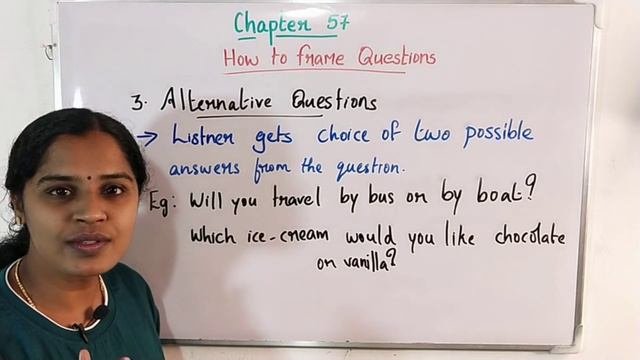 Chapter 57
How to frame Questions
3. Alternative Questions
→ Listner gets choice of two possible
answers from the question.
Eg: Will you travel by bus or by boat?
Which ice-cream would you like chocolate
or vanilla?